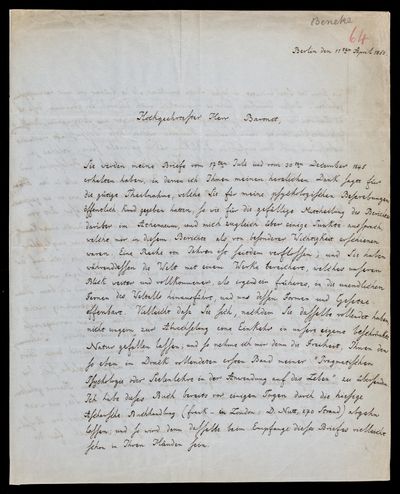 Beneke
64
Berlin den 11ten April 1850
Hochgeehrtester Herr Baronet,
Sie werden meine Briefe vom 17ten Juli und vom 30ten December 1848
erhalten haben, in denen ich Ihnen meinen herzlichen Dank sagte für
die gütige Theilnahme, welche Sie für meine psychologischen Bestrebungen
öffentlich kund gegeben hatten, so wie für die gefällige Mittheilung des Berichtes
darüber im Athenaeum, und mich zugleich über einige Punkte aussprach,
welche mir in diesem Berichte als von besonderer Wichtigkeit erschienen
waren. Eine Reihe von Jahren ist seitdem verflossen; und Sie haben
währenddessen die Welt mit einem Werke bereichert, welches unseren
Blick weiter und vollkommener, als irgend ein früheres, in die unendlichen
Fernen des Weltalls hinausführt, und uns dessen Formen und Gesetze
offenbart. Vielleicht dass Sie sich, nachdem Sie dasselbe vollendet haben,
nicht ungern zur Abwechselung eine Einkehr in unsere eigene beschränkte
Natur gefallen lassen; und so nehme ich mir denn die Freiheit, Ihnen den
so eben im Druck vollendeten ersten Band meiner "Pragmatischen
Psychologie oder Seelenlehre in der Anwendung auf das Leben" zu übersenden.
Ich habe dieses Buch bereits vor einigen Tagen durch die hiesige
Asher'sche Buchhandlung (in London: D. Nutt, 270 Strand) abgehen
lassen; und so wird denn dasselbe beim Empfange dieses Briefes vielleicht
schon in Ihren Händen sein.